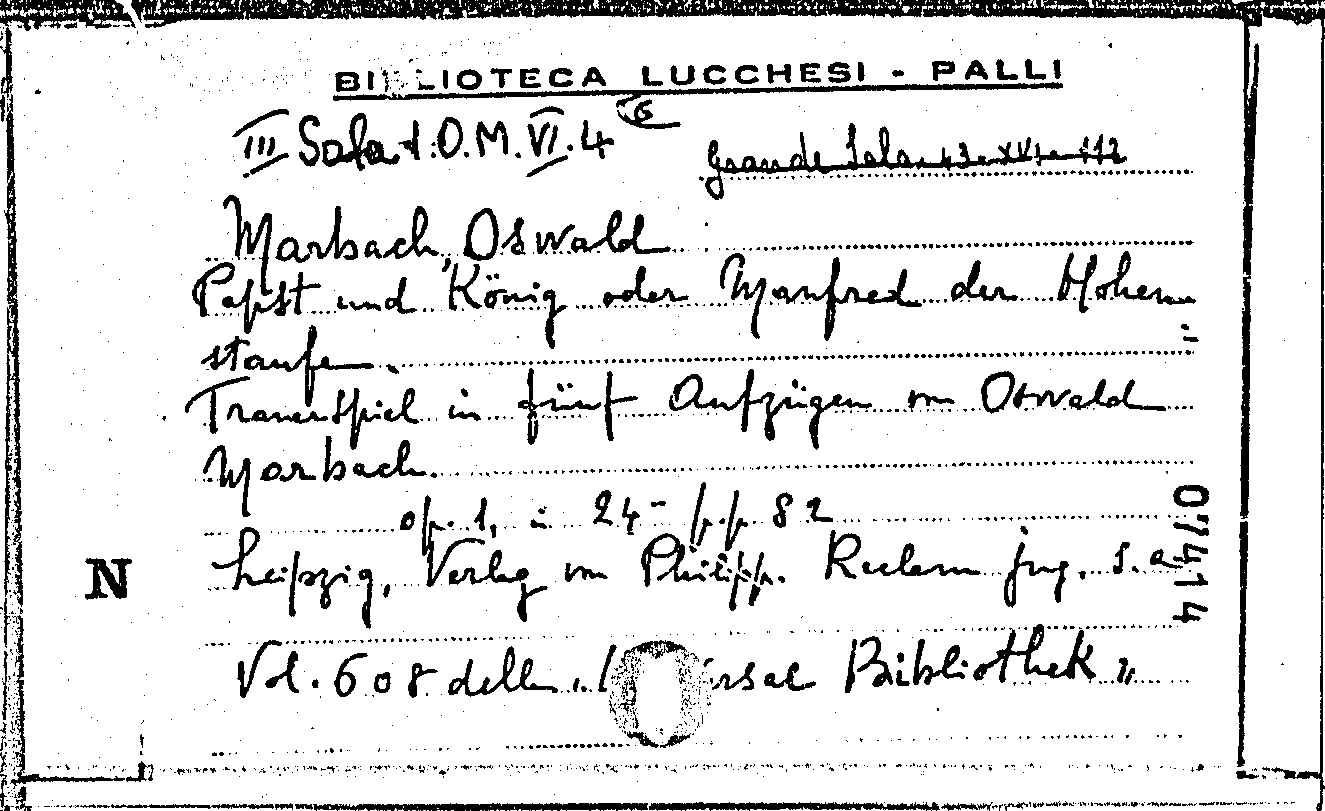 BIBLIOTECA LUCCHESI - PALLI
III Sala 1. O. M. VI. 4 6
Grande Sala 43. XVI. 112
Marbach, Oswald
Papst und König oder Manfred der Hohen=
staufe.
Trauerspiel in fünf Aufzügen von Oswald
Marbach.
op. 1, in 24- p.p. 82
Leipzig, Verlag von Philipp. Reclam jug. s.a.
07414
N
Vol. 608 della „ ersal Bibliothek „